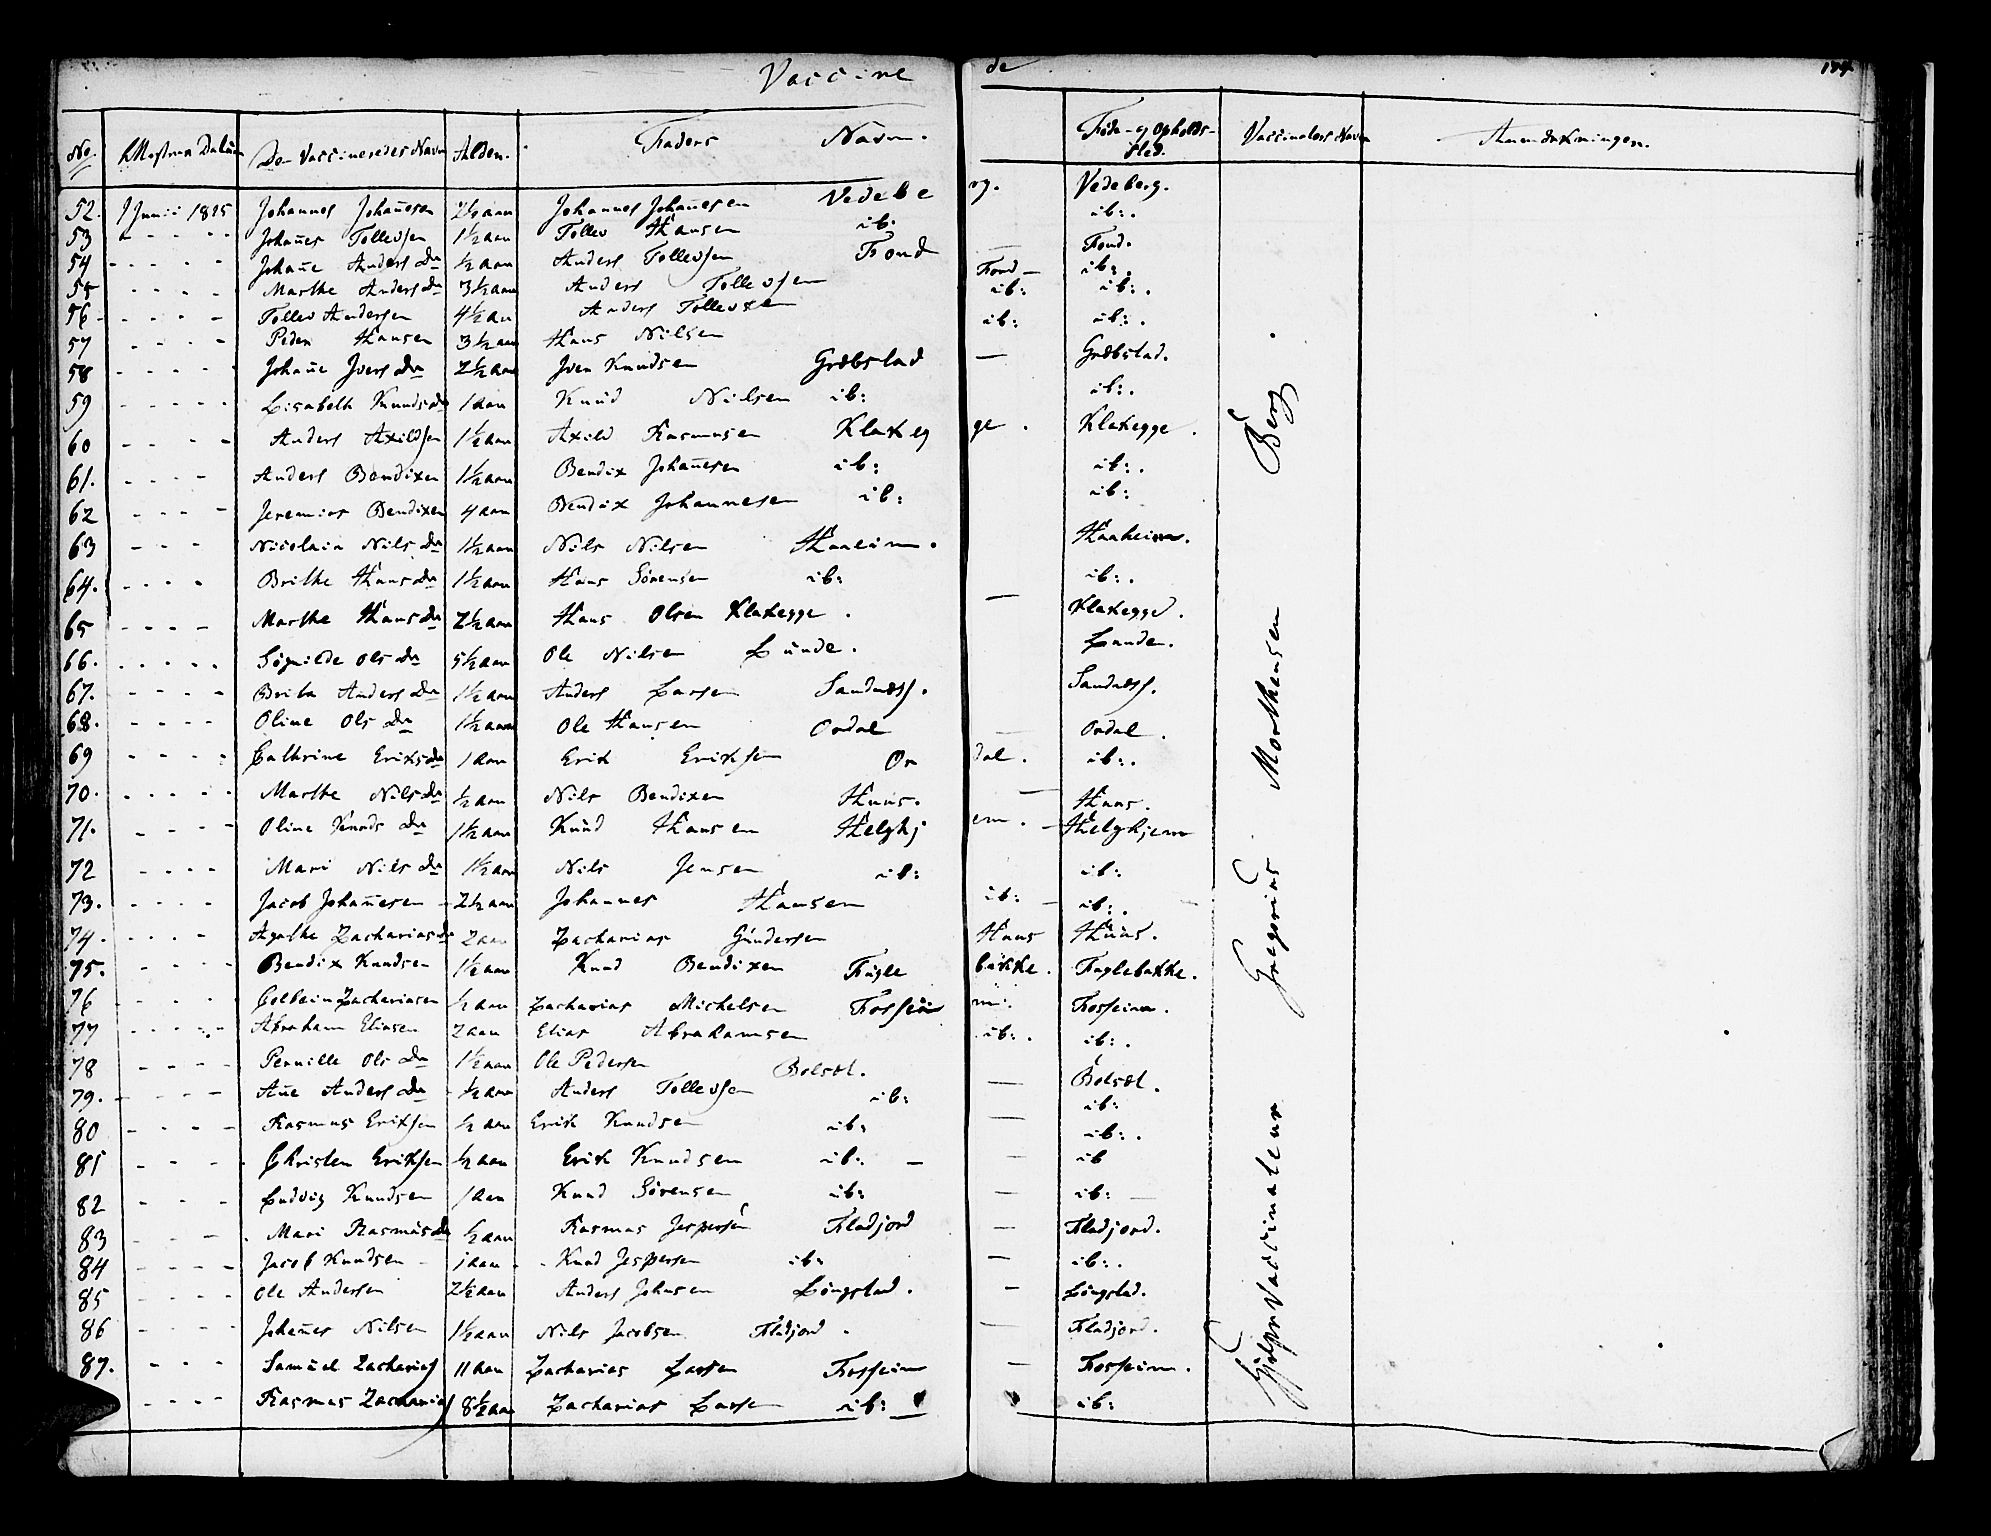 Vaccine de
No. Attestens Datum De Vaccineredes Navn Alder. Faders Navn. Føde- og Opholds-Sted. Vaccineteurs Navn Anmærkninger.
52. 1 Junii 1815 Johannes Johanesen 2½ aar Johannes Johanesen Vedeberg. Vedeberg.
53 - - - - Johanes Tollevsen 1½ aar Tollev Hansen ib: ib:.
54 - - - - Johane Anders Dr ½ aar Anders Tollevsen Fond — Fond.
55 - - - - Marthe Anders Dr 3½ aar Anders Tollevsen Fond — ib:.
56 - - - - Tollev Andersen 4½ aar Anders Tollevsen ib: ib:.
57 - - - - Peder Hansen 3½ aar Hans Nilsen ib: ib:.
58 - - - - Johane Ivers Dr 2½ aar Iver Knudsen Græbstad — Græbstad.
59 - - - - Lisabeth Knuds Dr 1 aar Knud Nilsen ib: ib:.
60 - - - - Anders Axildsen 1½ aar Axild Rasmusen Klaxegge. Klaxegge.
61. - - - - Anders Bendixen 1½ aar Bendix Johanesen ib: ib:.
62 - - - - Jeremias Bendixen 4 aar Bendix Johannesen ib: ib:
63 - - - Nicolaia Nils Dr 1½ aar Nils Nilsen Haaeim. Haaheim.
64. - - - - Brithe Hans Dr 1½ aar Hans Sørensen ib: ib:.
65 - - - - Marthe Hans Dr 2½ aar Hans Olsen Klaxegge. — Klaxegge.
66. - - - - Sønilde Ols Dr 5½ aar Ole Nilsen Lunde. Lunde.
67. - - - - Brita Anders Dr 1½ aar Anders Larsen Sandnæss. Sandnæss.
68. - - - - Oline Ols Dr 1½ aar Ole Hansen Ordal — Ordal.
69 - - - - Cathrine Eriks Dr 1 aar Erik Eriksen Ordal. ib:.
70. - - - - Marthe Nils Dr ½ aar Nils Bendixen Haus. — Haus.
71. - - - - Oline Knuds Dr 1½ aar Knud Hansen Helghjem. — Helghjem
72 - - - - Mari Nils Dr 1½ aar Nils Jensen ib: ib:
73. - - - - Jacob Johanesen 2½ aar Johannes Hansen ib: — ib:.
74. - - - - Agathe Zacharias Dr 2 aar Zacharias Gundersen Haus Haus.
75. - - - - Bendix Knudsen 1½ aar Knud Bendixen Fuglebakke. Fuglebakke.
76 - - - - Colbein Zachariasen ½ aar Zacharias Michelsen Fosseim. Fosseim.
77 - - - - Abraham Eliasen 2 aar Elias Abrahamsen ib:. ib:.
78 - - - - Pernille Ols Dr 1½ aar Ole Pedersen Bolsæt. — Bolsæt.
79. - - - - Ane Anders Dr ½ aar Anders Tollevsen ib: ib:
80 - - - - Rasmus Eriksen ½ aar Erik Knudsen ib: — ib:.
81 - - - - Christen Eriksen ½ aar Erik Knudsen ib: — ib
82 - - - Ludvig Knudsen 1 aar Knud Sørensen ib: — ib:
83 - - - Mari Rasmus Dr ½ aar Rasmus Jespersen Fladjord — Fladjord.
84 - - - - Jacob Knudsen 1 aar Knud Jespersen ib: — ib:.
85 - - - - Ole Andersen 2½ aar Anders Johnsen Løngstad. — Løngstad.
86 - - - - Johanes Nilsen 1½ aar Nils Jacobsen Fladjord. — Fladjord.
87. - - - Samuel Zacharias 11 aar Zacharias Larsen Fosseim — Fosseim.
- - - - Rasmus Zacharias 8½ aar Zacharias Larsen ib: ib:
Hjelper Vaccinateur Gregorius Morthensen Berg